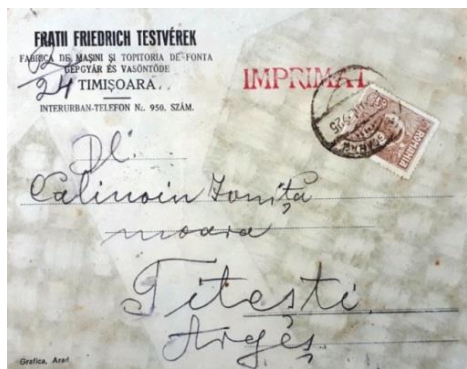 FRAȚII FRIEDRICH TESTVÉREK
FABRICA DE MAȘINI ȘI TOPITORIA DE FONTA
GÉPGYÁR ÉS VASÖNTÖDE
24 TIMIȘOARA
INTERURBAN-TELEFON No. 950. SZÁM.
IMPRIMAT
ROMANIA
Dl.
Calinoin Ioniță
moara
Titești
Argeș
Grafica, Arad